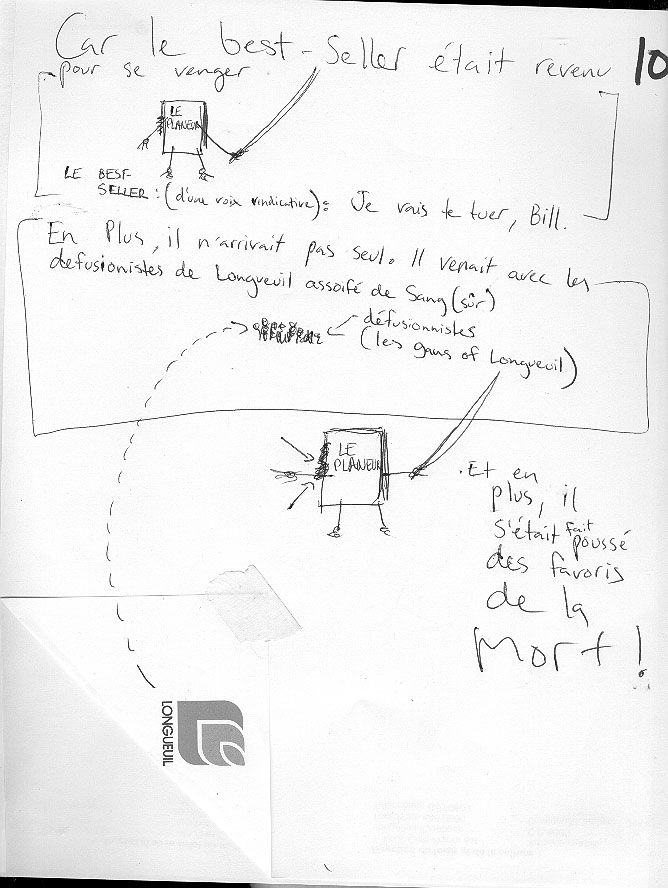 Car le best-Seller était revenu
10
pour se venger
LE
PLANEUR
LE BEST-
SELLER : (d'une voix vindicative) : Je vais te tuer, Bill.
En Plus, il n'arrivait pas seul. Il venait avec les
défusionistes de Longueuil assoifé de Sang (sûr)
défusionnistes
(les gans of Longueuil)
LE
PLANEUR
Et en
plus, il
s'était fait
poussé
des favoris
de la
Mort!
LONGUEUIL